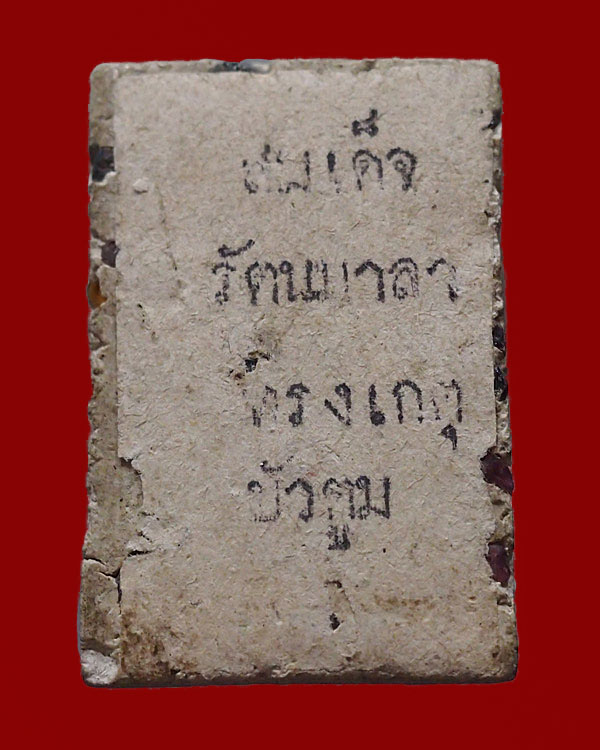 สมเด็จ
รัตนมาลา
ทรงเกตุ
บัวตูม